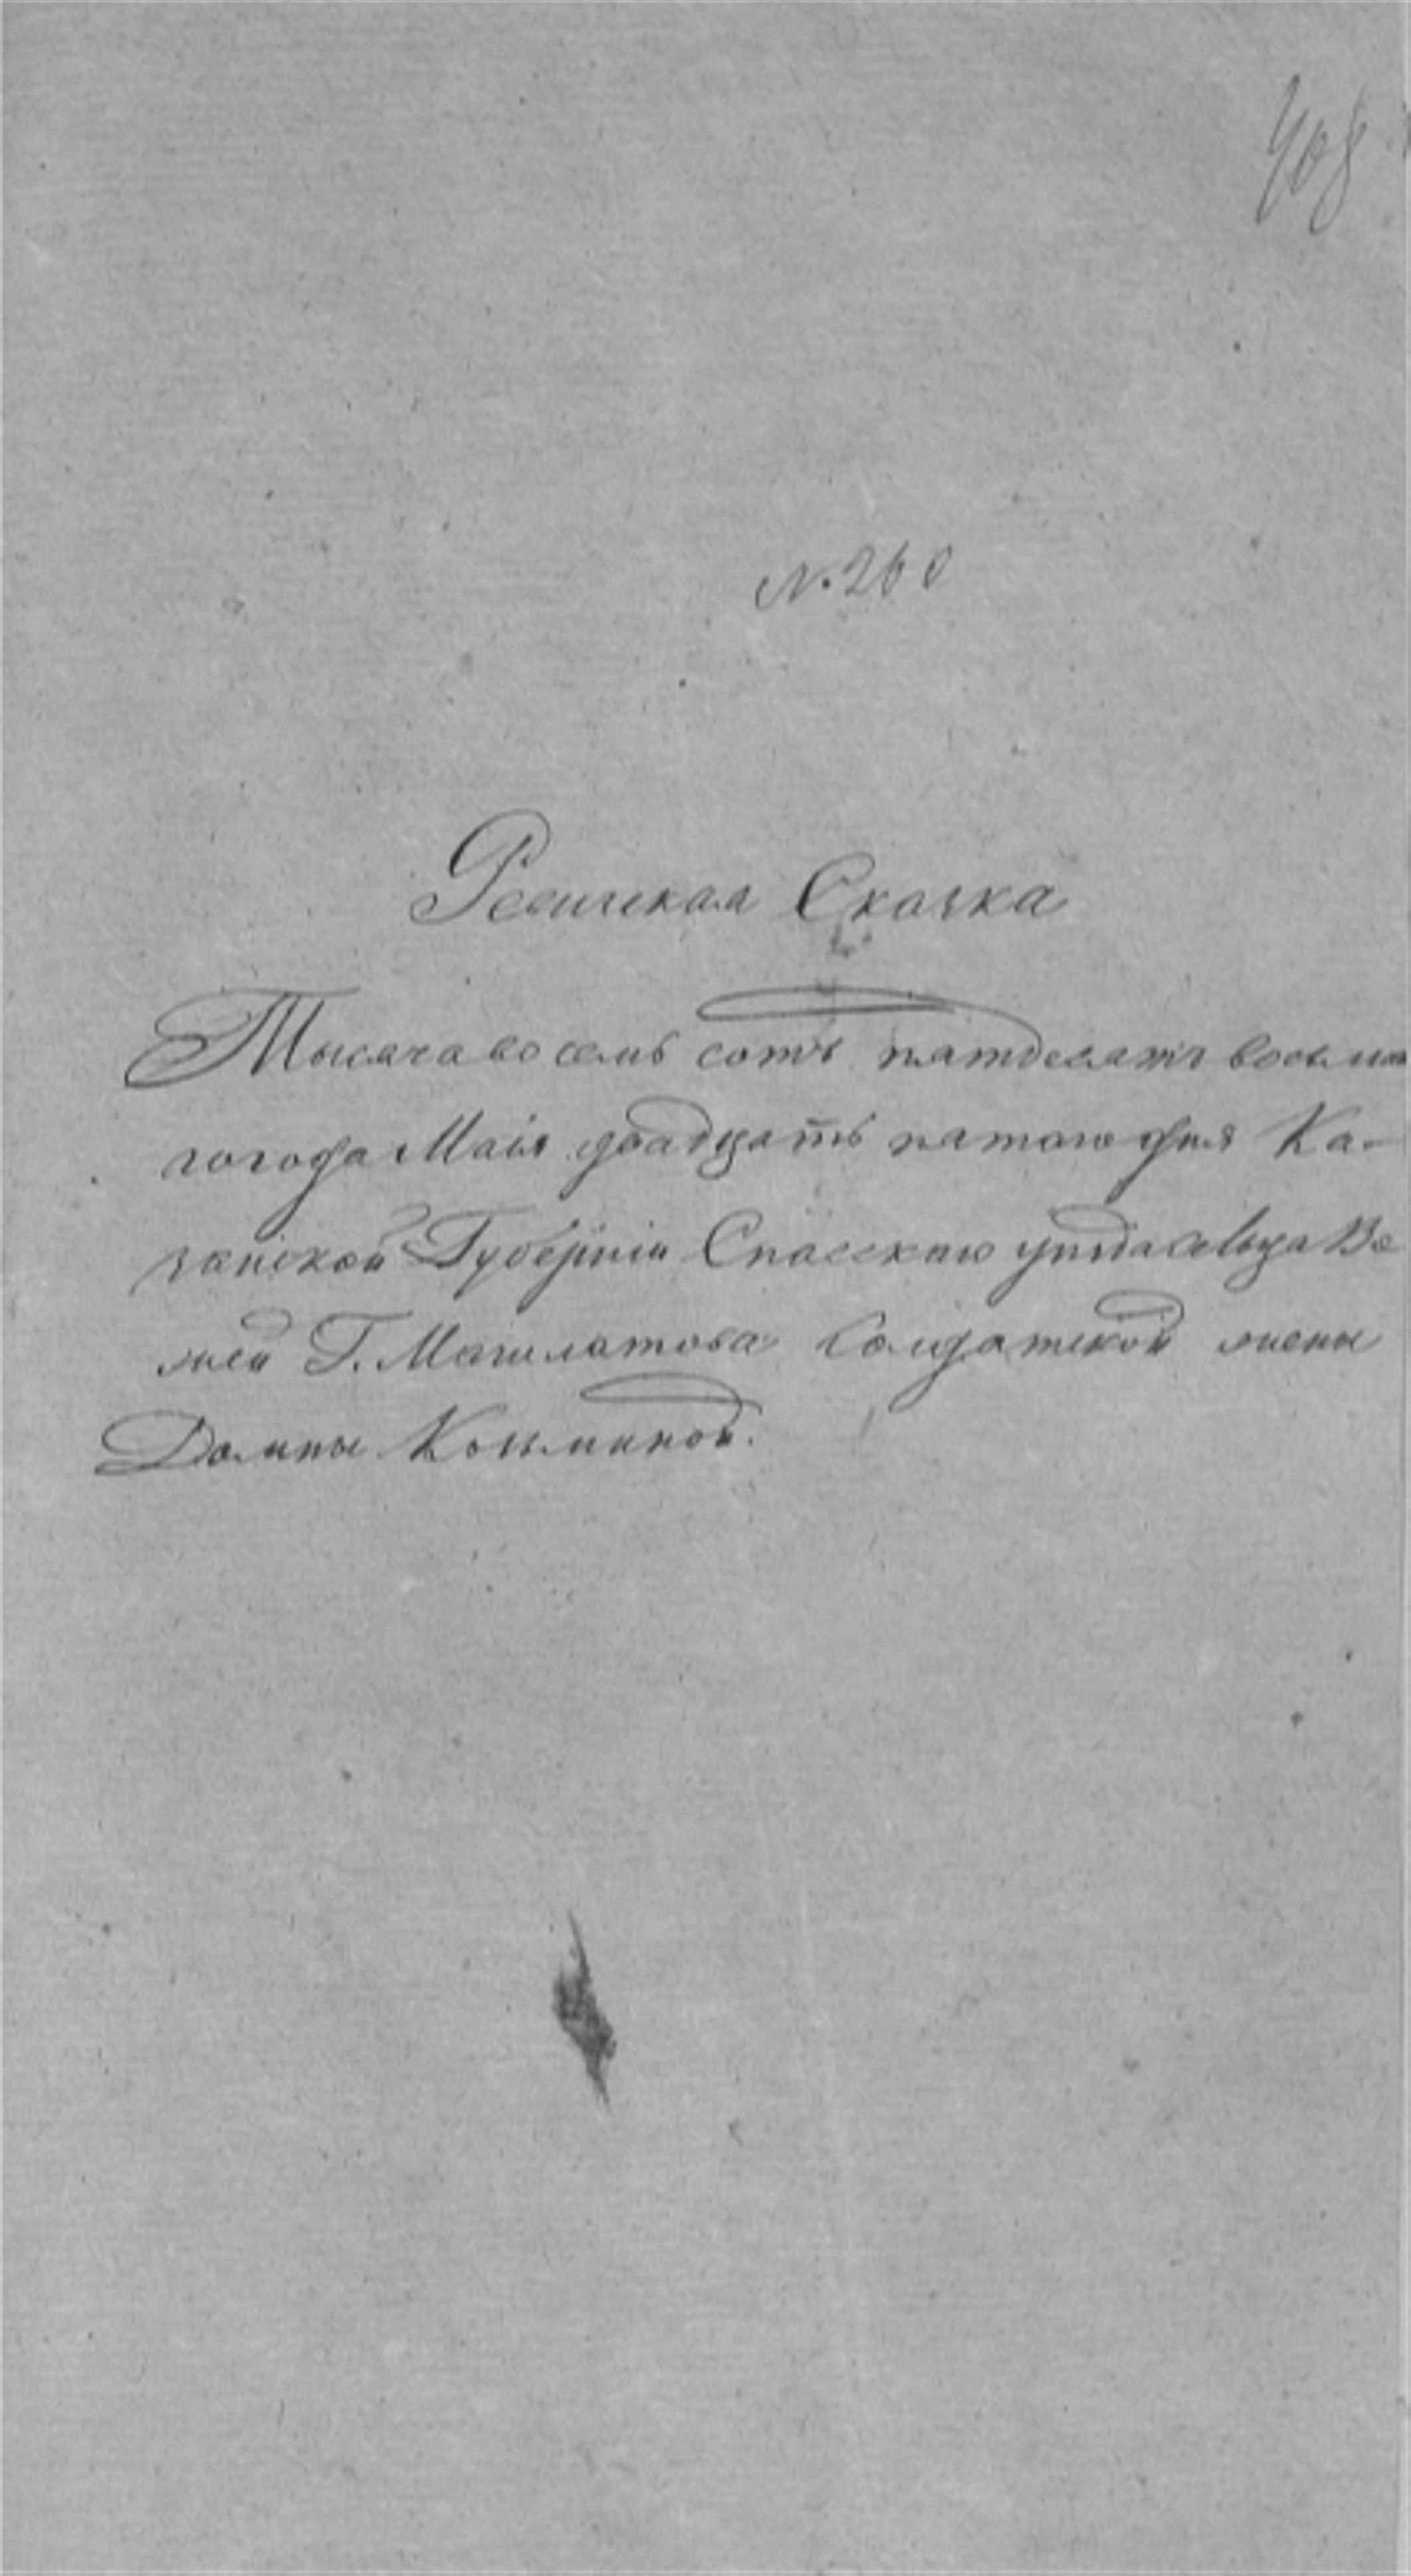 408
N. 260
Ревижская Скаска
Тысяча восемь сотъ пятдесятъ восьма
го года Маія двадцать пятаго дня Ка-
занской Губерніи Спасскаго уѣзда сельца
Г. Солдатской жены
Домны Козьминой.